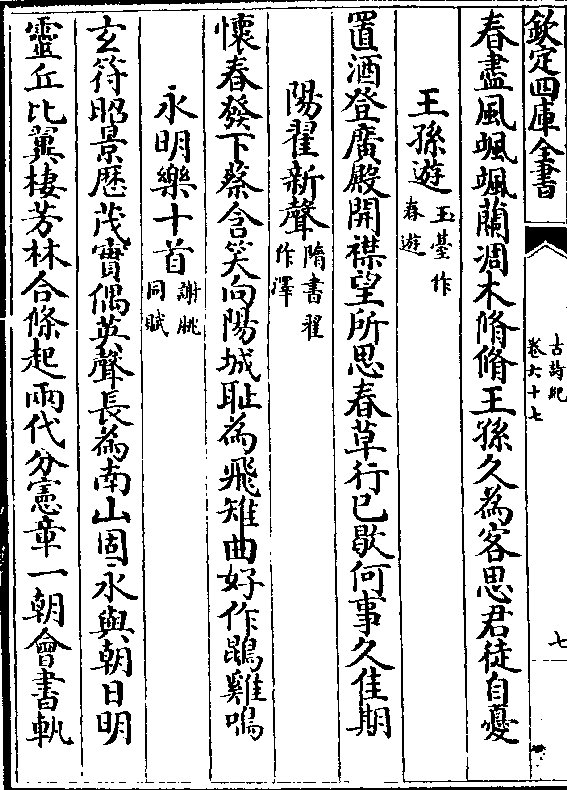 欽定四庫全書
古詩紀
卷六十七
七
春盡風颯颯蘭凋木脩脩王孫久為客思君徒自憂
王孫遊玉臺作春遊
置酒登廣殿開襟望所思春草行已歇何事久佳期
陽翟新聲隋書翟作澤
懷春發下蔡含笑向陽城耻為飛雉曲好作鵾雞鳴
永明樂十首謝朓同賦
玄符昭景歴茂實偶英聲長為南山固永與朝日明
靈丘比翼棲芳林合條起兩代分憲章一朝會書軌